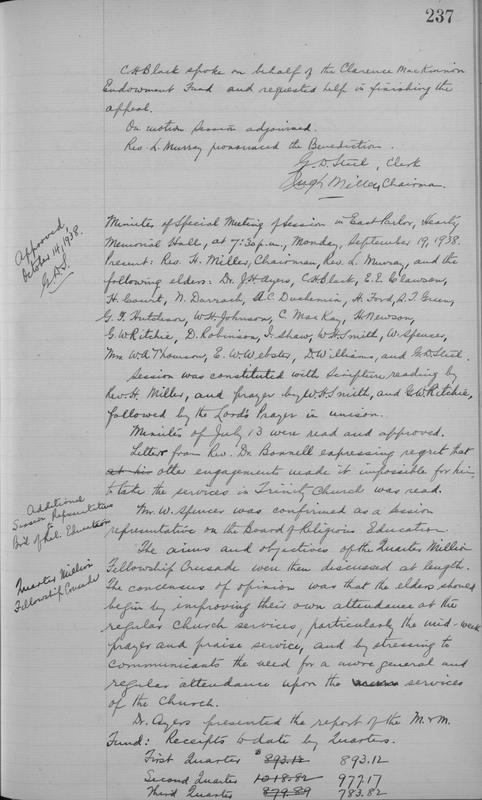 237
C H Black spoke on behalf of the Clarence MacKinnon
Endowment Fund and requested help in finishing the
appeal.
On motion Session adjourned.
Rev. L. Murray pronounced the Benediction.
G. D. Steel, Clerk
Hugh Miller, Chairman.
Approved,
October 14, 1938.
G.D.S.
Minutes of Special Meeting of Session in East Parlor, Heartz
Memorial Hall, at 7:30 p.m., Monday, September 19, 1938.
Present: Rev. H. Miller, Chairman, Rev. L. Murray, and the
following elders: Dr. J H Ayers, C H Black, E. E. Clawson,
H. Court, N. Darrach, A. C. Duchemin, H. Ford, S. T. Green,
G. F. Hutcheson, W. H. Johnson, C. MacKay, H Newson,
G. W Ritchie, D. Robinson, I. Shaw, W. H. Smith, W. Spencer,
Mr W. A Thomson, E. W. Webster, D. Williams, and G. D. Steel.
Session was constituted with Scripture reading by
Rev. H. Miller, and prayer by W. H Smith, and G. W. Ritchie,
followed by the Lord's Prayer in unison.
Minutes of July 13 were read and approved.
Letter from Rev. Dr. Bonnell expressing regret that
at his other engagements made it impossible for him
to take the services in Trinity Church was read.
Additional
Session Representatives
to
Brd. of Rel. Education
Mr. W. Spencer was confirmed as a Session
representative on the Board of Religious Education.
Quarter Million
Fellowship Crusade
The aims and objectives of the Quarter Million
Fellowship Crusade were then discussed at length.
The concensus of opinion was that the elders should
begin by improving their own attendance at the
regular church services, particularly the mid-week
prayer and praise service, and by stressing to
communicants the need for a more general and
regular attendance upon the services
of the Church.
Dr. Ayers presented the report of the M. & M.
Fund: Receipts to date by Quarters.
First Quarter $893.12 893.12
Second Quarter 1018.82 977.17
Third Quarter 879.89 783.82